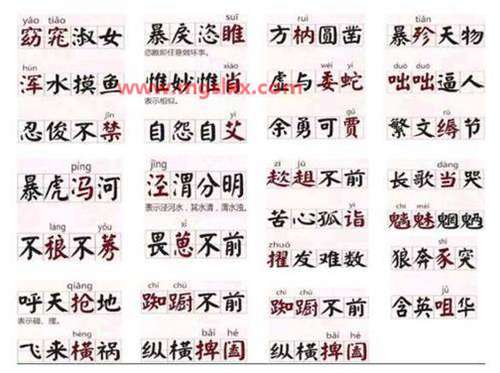 yǎo tiǎo suī ruì tiǎn
窈窕淑女 暴戾恣睢 方枘圆凿 暴殄天物
恣睢即任意做坏事。
hún xiào wēi yí duō duō
浑水摸鱼 惟妙惟肖 虚与委蛇 咄咄逼人
表示相似。
jīn yì
忍俊不禁 自怨自艾 余勇可贾 繁文缛节
píng jīng zī jū dàng
暴虎冯河 泾渭分明 趑趄不前 长歌当哭
表示泾河水,其水清,渭水浊。
苦心孤诣 魑魅魍魉
láng yǒu xǐ zhuó
不稂不莠 畏葸不前 擢发难数 狼奔豕突
qiāng chí chú chí chú
呼天抢地 踟蹰不前 踟蹰不前 含英咀华
表示碰、撞。
hèng bǎi hé bǎi hé
飞来横祸 纵横捭阖 纵横捭阖